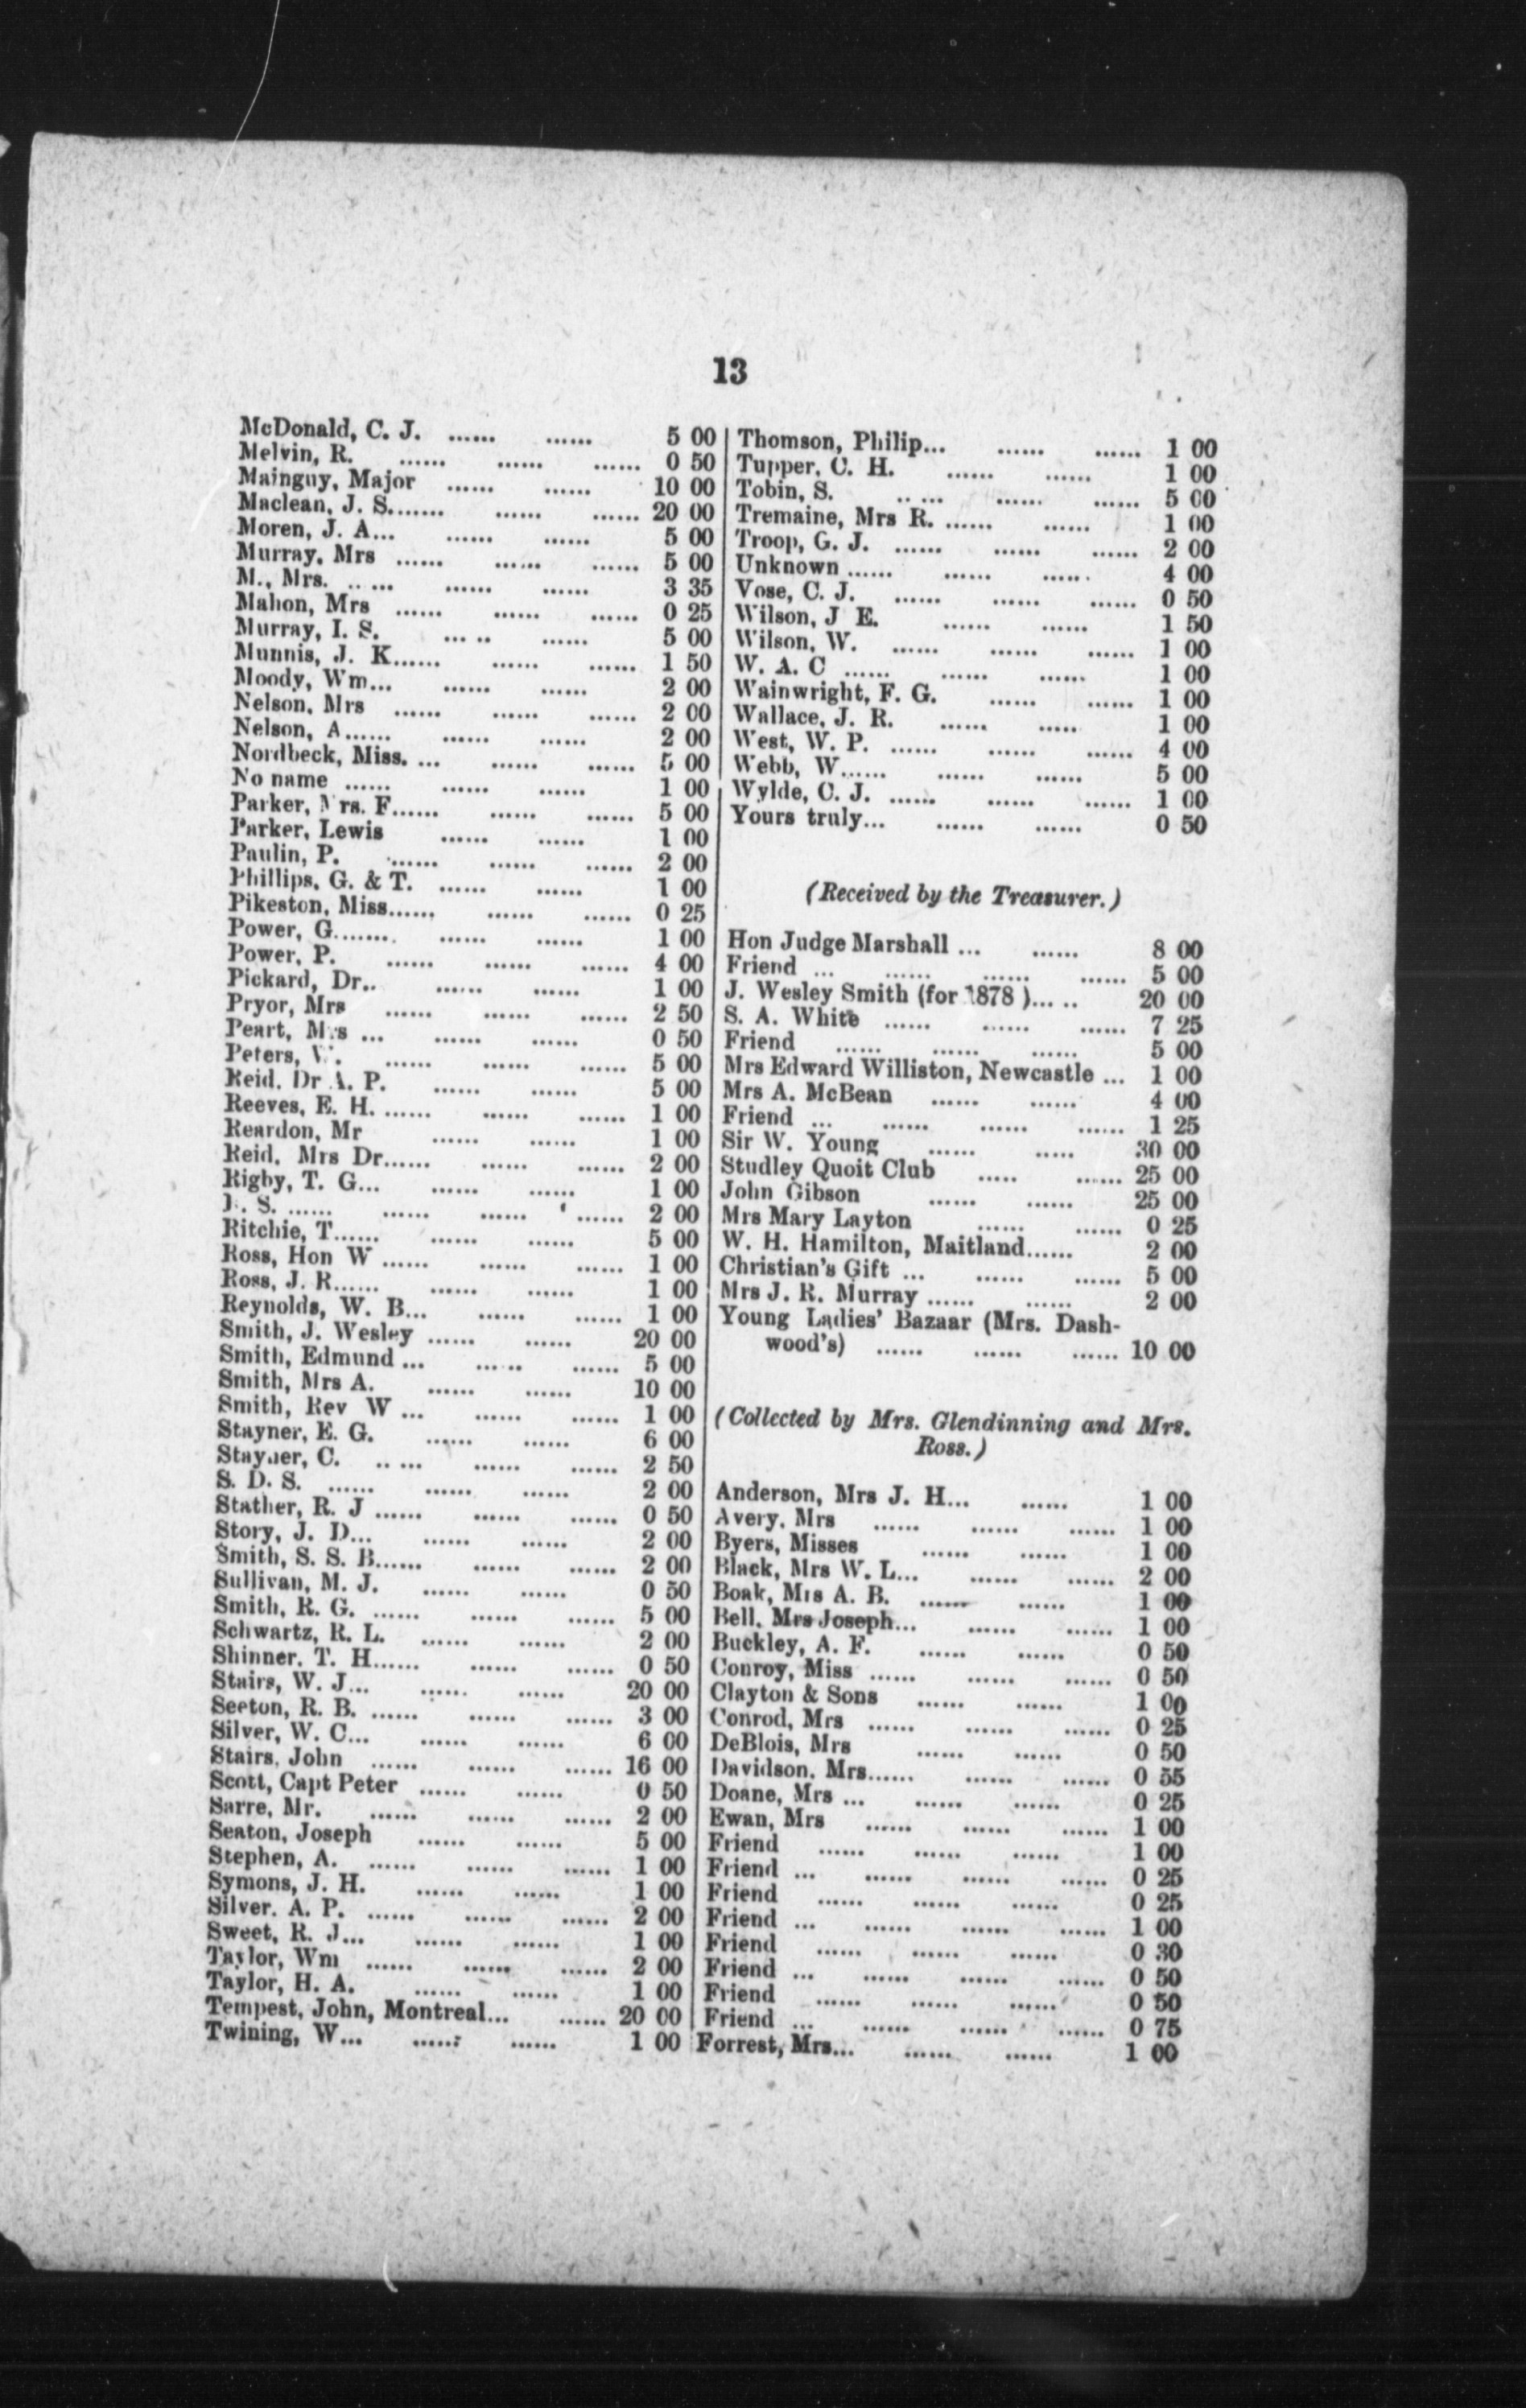 13
McDonald, C. J. ...... ...... 5 00
Melvin, R. ...... ...... ...... 0 50
Mainguy, Major ...... ...... 10 00
Maclean, J. S....... ...... ...... 20 00
Moren, J. A... ...... ...... 5 00
Murray, Mrs ...... ...... ...... 5 00
M., Mrs. ..... ...... ...... 3 35
Mahon, Mrs ...... ...... ...... 0 25
Murray, I. S. ..... ...... 5 00
Munnis, J. K...... ...... ...... 1 50
Moody, Wm... ...... ...... 2 00
Nelson, Mrs ...... ...... ...... 2 00
Nelson, A...... ...... ...... 2 00
Nordbeck, Miss. ... ...... ...... 5 00
No name ...... ...... ...... 1 00
Parker, Mrs. F...... ...... ...... 5 00
Parker, Lewis ...... ...... 1 00
Paulin, P. ...... ...... ...... 2 00
Phillips, G. & T. ...... ...... 1 00
Pikeston, Miss...... ...... ...... 0 25
Power, G....... ...... ...... 1 00
Power, P. ...... ...... ...... 4 00
Pickard, Dr.. ...... ...... 1 00
Pryor, Mrs ...... ...... ...... 2 50
Peart, Mrs ... ...... ...... 0 50
Peters, W. ...... ...... ...... 5 00
Reid, Dr A. P. ...... ...... 5 00
Reeves, E. H. ...... ...... ...... 1 00
Reardon, Mr ...... ...... 1 00
Reid, Mrs Dr...... ...... ...... 2 00
Rigby, T. G... ...... ...... 1 00
S. ...... ...... ...... ...... 2 00
Ritchie, T...... ...... ...... 5 00
Ross, Hon W ...... ...... ...... 1 00
Ross, J. R...... ...... ...... 1 00
Reynolds, W. B... ...... ...... 1 00
Smith, J. Wesley ...... ...... 20 00
Smith, Edmund ... ..... ...... 5 00
Smith, Mrs A. ...... ...... 10 00
Smith, Rev W ... ...... ...... 1 00
Stayner, E. G. ...... ...... 6 00
Stayner, C. ..... ...... ...... 2 50
S. D. S. ...... ...... ...... 2 00
Stather, R. J ...... ...... ...... 0 50
Story, J. D... ...... ...... 2 00
Smith, S. S. B...... ...... ...... 2 00
Sullivan, M. J. ...... ...... 0 50
Smith, R. G. ...... ...... ...... 5 00
Schwartz, R. L. ...... ...... 2 00
Shinner. T. H...... ...... ...... 0 50
Stairs, W. J... ...... ...... 20 00
Seeton, R. B. ...... ...... ...... 3 00
Silver, W. C... ...... ...... 6 00
Stairs, John ...... ...... ...... 16 00
Scott, Capt Peter ...... ...... 0 50
Sarre, Mr. ...... ...... ...... 2 00
Seaton, Joseph ...... ...... 5 00
Stephen, A. ...... ...... ...... 1 00
Symons, J. H. ...... ...... 1 00
Silver. A. P. ...... ...... ...... 2 00
Sweet, R. J... ...... ...... 1 00
Taylor, Wm ...... ...... ...... 2 00
Taylor, H. A. ...... ...... 1 00
Tempest, John, Montreal... ...... 20 00
Twining, W... ...... ...... 1 00
Thomson, Philip... ...... ...... 1 00
Tupper, C. H. ...... ...... 1 00
Tobin, S. ..... ...... ...... 5 00
Tremaine, Mrs R. ...... ...... 1 00
Troop, G. J. ...... ...... ...... 2 00
Unknown ...... ...... ...... 4 00
Vose, C. J. ...... ...... ...... 0 50
Wilson, J E. ...... ...... 1 50
Wilson, W. ...... ...... ...... 1 00
W. A. C ...... ...... ...... 1 00
Wainwright, F. G. ...... ...... 1 00
Wallace, J. R. ...... ..... 1 00
West, W. P. ...... ...... ...... 4 00
Webb, W...... ...... ...... 5 00
Wylde, C. J. ...... ...... ...... 1 00
Yours truly... ...... ...... 0 50
(Received by the Treasurer.)
Hon Judge Marshall ... ...... 8 00
Friend ... ...... ...... ...... 5 00
J. Wesley Smith (for 1878 )... .. 20 00
S. A. White ...... ...... ...... 7 25
Friend ...... ...... ...... 5 00
Mrs Edward Williston, Newcastle ... 1 00
Mrs A. McBean ...... ...... 4 00
Friend ... ...... ...... ...... 1 25
Sir W. Young ...... ..... 30 00
Studley Quoit Club ..... ...... 25 00
John Gibson ...... ...... 25 00
Mrs Mary Layton ...... ...... 0 25
W. H. Hamilton, Maitland...... 2 00
Christian's Gift ... ...... ...... 5 00
Mrs J. R. Murray ...... ...... 2 00
Young Ladies' Bazaar (Mrs. Dash-
wood's) ...... ...... ...... 10 00
(Collected by Mrs. Glendinning and Mrs.
Ross.)
Anderson, Mrs J. H... ...... 1 00
Avery, Mrs ...... ...... ...... 1 00
Byers, Misses ...... ...... 1 00
Black, Mrs W. L... ...... ...... 2 00
Boak, Mrs A. B. ...... ...... 1 00
Bell, Mrs Joseph... ...... ...... 1 00
Buckley, A. F. ...... ...... 0 50
Conroy, Miss ...... ...... ...... 0 50
Clayton & Sons ...... ...... 1 00
Conrod, Mrs ...... ...... ...... 0 25
DeBlois, Mrs ...... ...... 0 50
Davidson, Mrs...... ...... ...... 0 55
Doane, Mrs ... ...... ...... 0 25
Ewan, Mrs ...... ...... ...... 1 00
Friend ...... ...... ...... 1 00
Friend ... ...... ...... ...... 0 25
Friend ...... ...... ...... 0 25
Friend ... ...... ...... ...... 1 00
Friend ...... ...... ...... 0 30
Friend ... ...... ...... ...... 0 50
Friend ...... ...... ...... 0 50
Friend ... ...... ...... ...... 0 75
Forrest, Mrs... ...... ...... 1 00